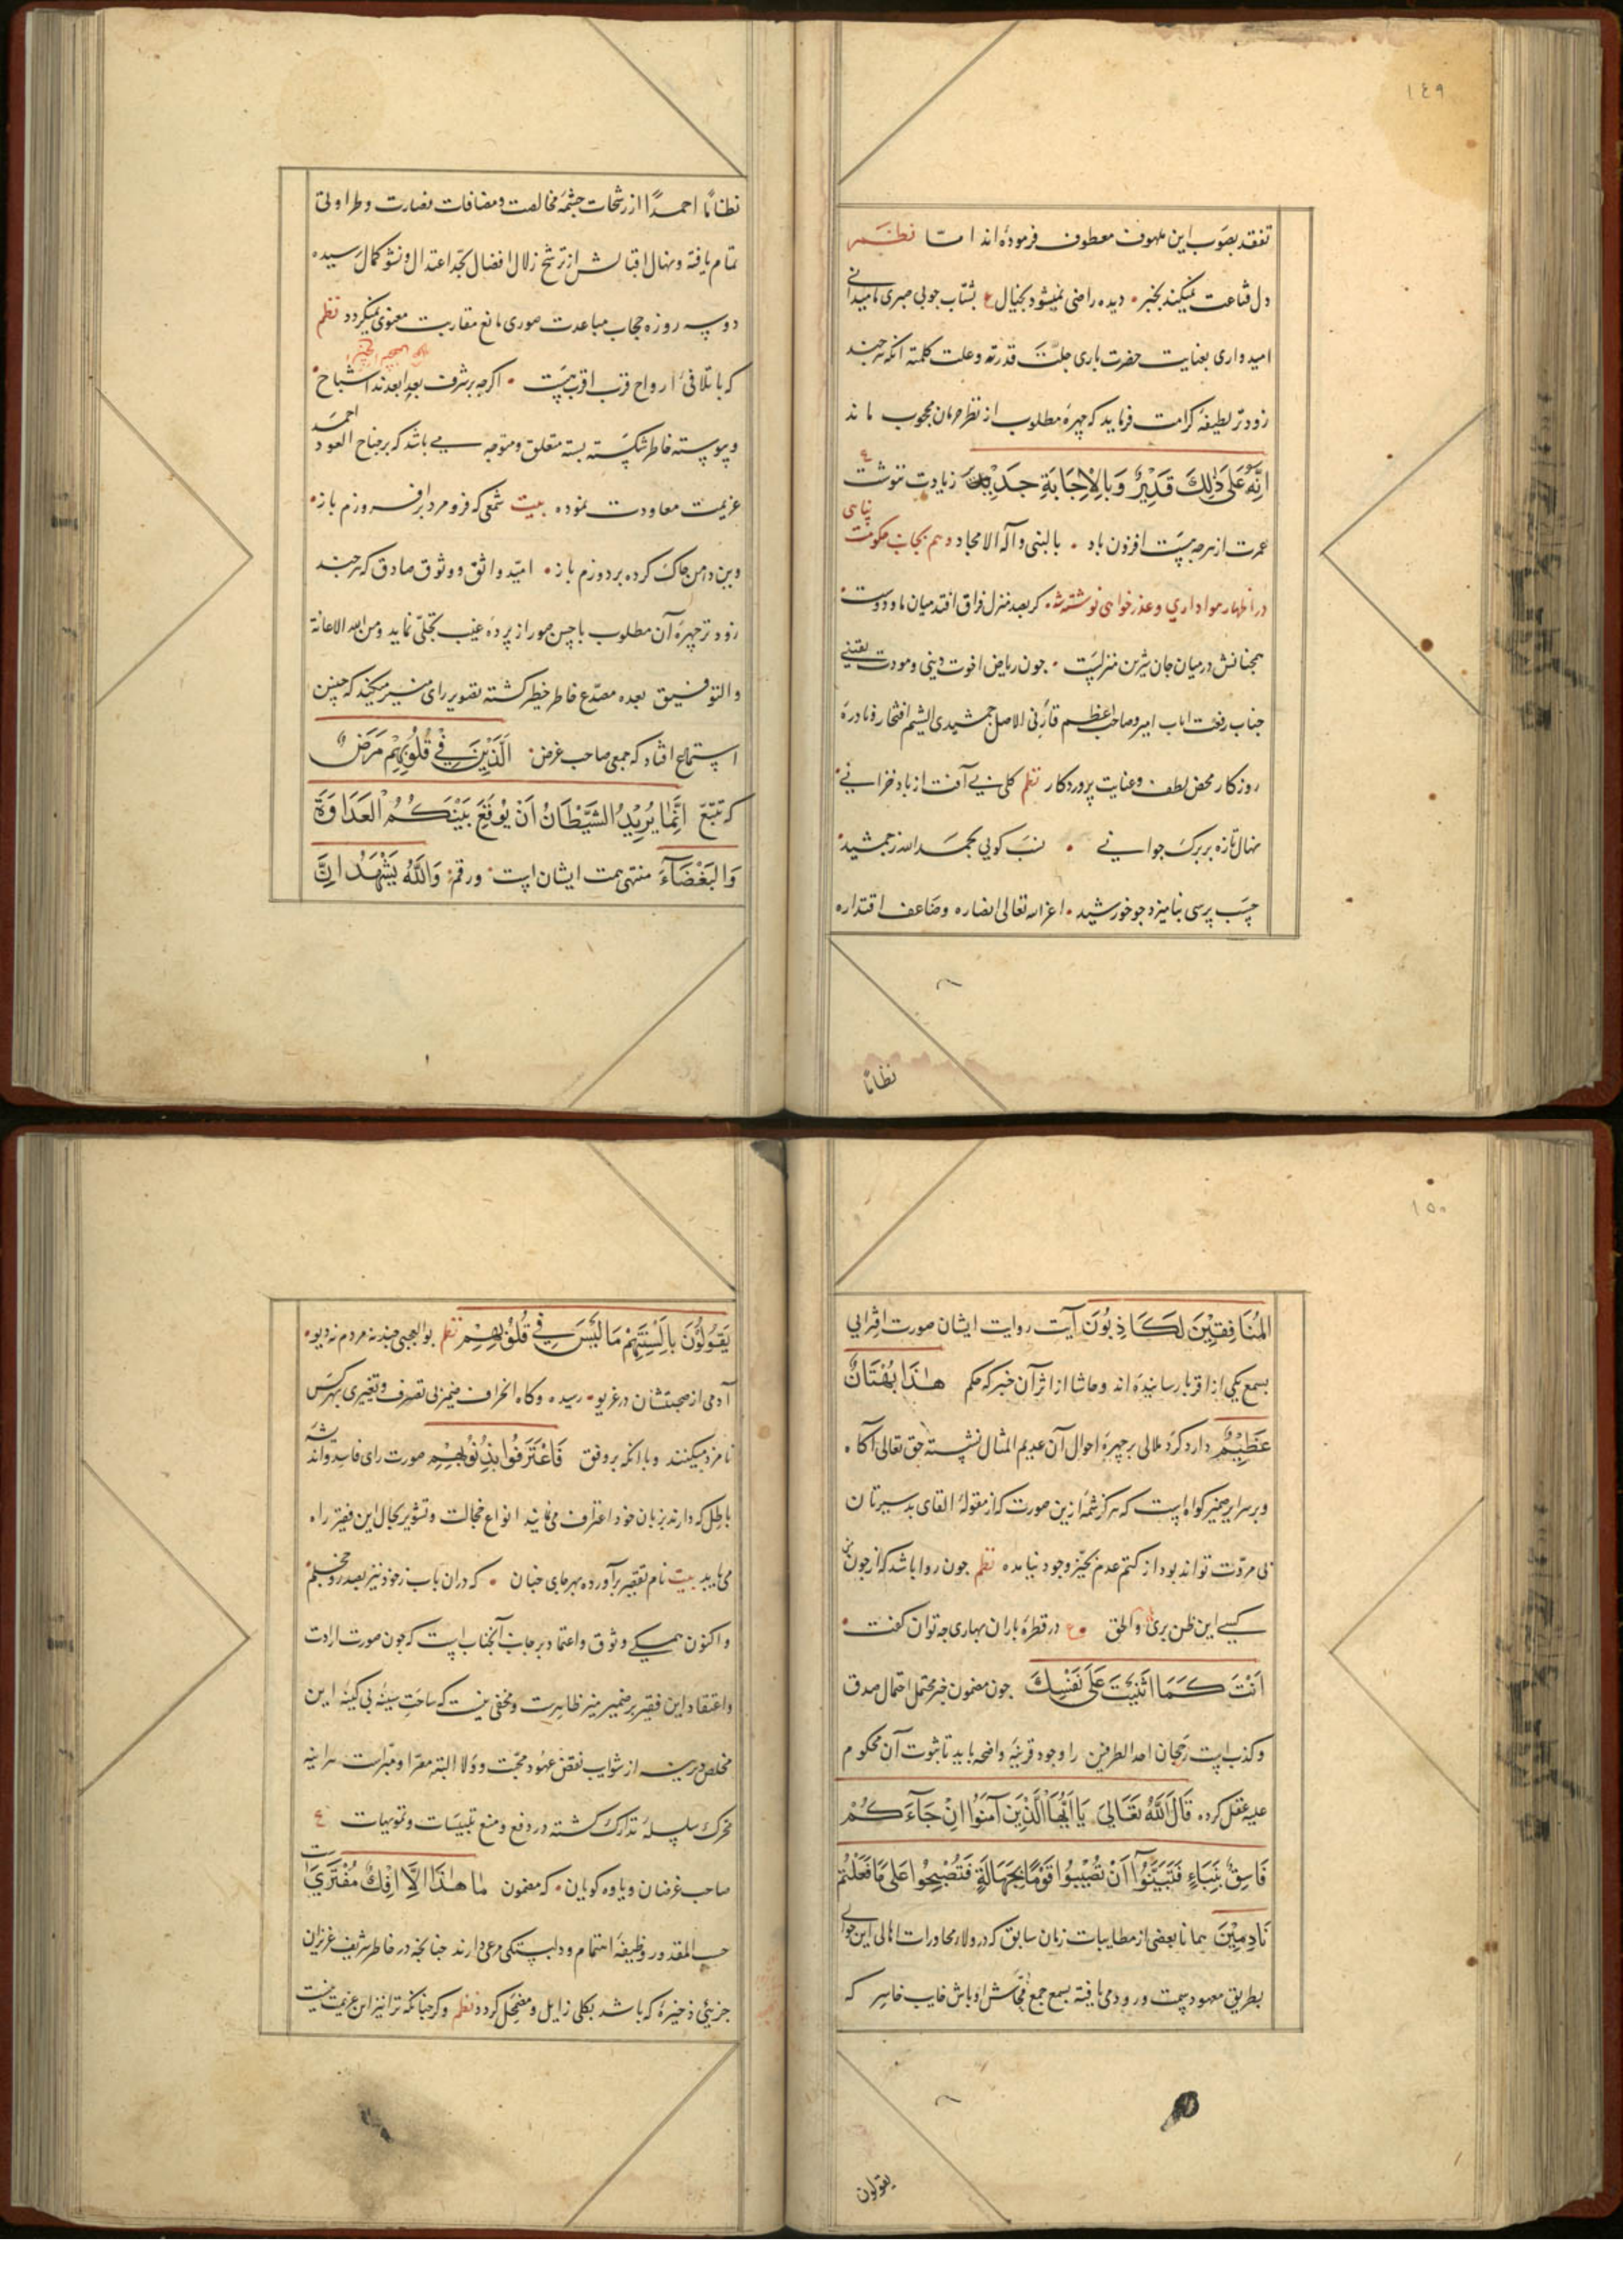 ١٤٩
تفقد بصوب این ملهوف معطوف فرموده اند اما نظم
دل قناعت نمیکند بخبر دیده راضی نمیشود بخیال ع بشتاب جوبی صبری ما میدانی
امیدواری بعنایت حضرت باری جلت قدرته وعلت کلمته انکه هرچند
زودتر لطیفهٔ کرامت فرماید که چهرهٔ مطلوب از نظر حرمان محجوب ماند
اِنَّهُ عَلی ذٰلِكَ قَدِیْرٌ وَبِالْاِجَابَةِ جَدِیْرٌ زیادت ننوشت
عمرت از هرچه هست افزون باد بالنبی وآله الامجاد وهم بجانب حکومت پناهی
در اظهار هواداری وعذرخواهی نوشته شد کر بعد منزل فراق افتد میان ما ودوست
همچنانش درمیان جان شیرین منزلست جون ریاض اخوت دینی ومودت یقینی
جناب رفعت اباب امیر وصاحب اعظم قارنی الاصل جمشیدی الشیم افتخار ونادرهٔ
روزکار محض لطف وعنایت پروردکار نظم کلی بی آفت از باد خزانی
نهال تازه بر برک جوانی نسب کویی بحمد الله ز جمشید
حسب پرسی بنامیزد جو خورشید اعز الله تعالی انصاره وضاعف اقتداره
نطانا
نطانا احمدًا از رشحات چشمهٔ مخالصت ومصافات نضارت وطراوتی
تمام یافته ونهال اقبالش از ترشح زلال افضال بحد اعتدال ونشو کمال رسیده
دوسه روزه حجاب مباعدت صوری مانع مقاربت معنوی نمیکردد نظم
که با تلاقی ارواح قرب اقرب هست اکرچه بر شرف بعد ابعدند اشباح
وپیوسته خاطر شکسته بسته متعلق ومتوجه می باشد که بر جناح العود احمد
عزیمت معاودت نموده بیت شمعی که فرو مرد برافروزم باز
وین دامن چاک کرده بردوزم باز امید واثق ووثوق صادق که هرچند
زودتر چهرهٔ آن مطلوب باحسن صور از پردهٔ غیب تجلی نماید ومن الله الاعانة
والتوفیق بعده مصدع خاطر خطیر کشته تصویر رای منیر میکند که چنین
استماع افتاد که جمعی صاحب غرض اَلَّذِیْنَ فِیْ قُلُوْبِهِمْ مَرَضٌ
که تتبع اِنَّمَا یُرِیْدُ الشَّیْطَانُ اَنْ یُوْقِعَ بَیْنَکُمُ الْعَدَاوَةَ
وَالْبَغْضَآءَ منتهی همت ایشان است ورقم وَاللّٰهُ یَشْهَدُ اِنَّ
١٥٠
الْمُنَافِقِیْنَ لَکَاذِبُوْنَ آیت روایت ایشان صورت افترایی
بسمع یکی از اقربا رسانیده اند وحاشا از اثر آن خبر که حکم هٰذَا بُهْتَانٌ
عَظِیْمٌ دارد کرد ملالی بر چهرهٔ احوال آن عدیم المثال نشسته حق تعالی آکاه
وبر سرایر ضمیر کواه است که هرکز شمهٔ ازین صورت که از مقولهٔ القای بدسیرتان
بی مروت تواند بود از کتم عدم بحیز وجود نیامده نظم جون روا باشد که از جون من
کسی این ظن بری والحق ع در قطرهٔ باران بهاری چه توان کفت
اَنْتَ کَمَا اَثْنَیْتَ عَلٰی نَفْسِكَ جون مضمون خبر محتمل احتمال صدق
وکذب است رجحان احد الطرفین را وجود قرینهٔ واضحه باید تا ثبوت آن محکوم
علیه عقل کردد قَالَ اللّٰهُ تَعَالٰی یَا اَیُّهَا الَّذِیْنَ آمَنُوْا اِنْ جَآءَکُمْ
فَاسِقٌ بِنَبَاءٍ فَتَبَیَّنُوْآ اَنْ تُصِیْبُوْا قَوْمًا بِجَهَالَةٍ فَتُصْبِحُوْا عَلٰی مَا فَعَلْتُمْ
نَادِمِیْنَ همانا بعضی از مطایبات زبان سابق که در ولا ومحاورات اهالی این حوالی
بطریق معهود سمت ورود می یافته بسمع جمع قماش اوباش خایب خاسر که
یقولون
یَقُوْلُوْنَ بِاَلْسِنَتِهِمْ مَا لَیْسَ فِیْ قُلُوْبِهِمْ نظم بوالعجبی چند نه مردم نه دیو
آدمی از صحبتشان در غریو رسیده وکاه انحراف ضمن بی تصرف وتغییری بهرکس
نامزد میکنند وبا انکه بر وفق فَاعْتَرَفُوْا بِذُنُوْبِهِمْ صورت رای فاسد واندیشهٔ
باطل که دارند بزبان خود اعتراف می نمایند انواع خجالت وتشویر بحال این فقیر راه
می یابد بیت نام تقصیر برآورده بهر جای چنان که دران باب ز خود نیز بصد رو خجلم
واکنون همکی وثوق واعتماد بر جانب آنجناب است که جون صورت ارادت
واعتقاد این فقیر بر ضمیر منیر ظاهرست ومخفی نیست که ساحت سینهٔ بی کینهٔ این
مخلص دیرینه از شوایب نقض عهود محبت وولا البته معرا ومبراست هراینه
محرک سلسلهٔ تدارک کشته در دفع ومنع تلبیسات وتمویهات
صاحب غرضان ویاوه کویان که مضمون مَا هٰذَا اِلَّا اِفْكٌ مُفْتَرًی است
حسب المقدور وظیفهٔ اهتمام ودلبستکی مرعی دارند چنانچه در خاطر شریف عزیزان
جزئی ذخیرهٔ که باشد بکلی زایل ومضمحل کردد نظم وکر چنانکه ترا نیز این عزیمت نیست